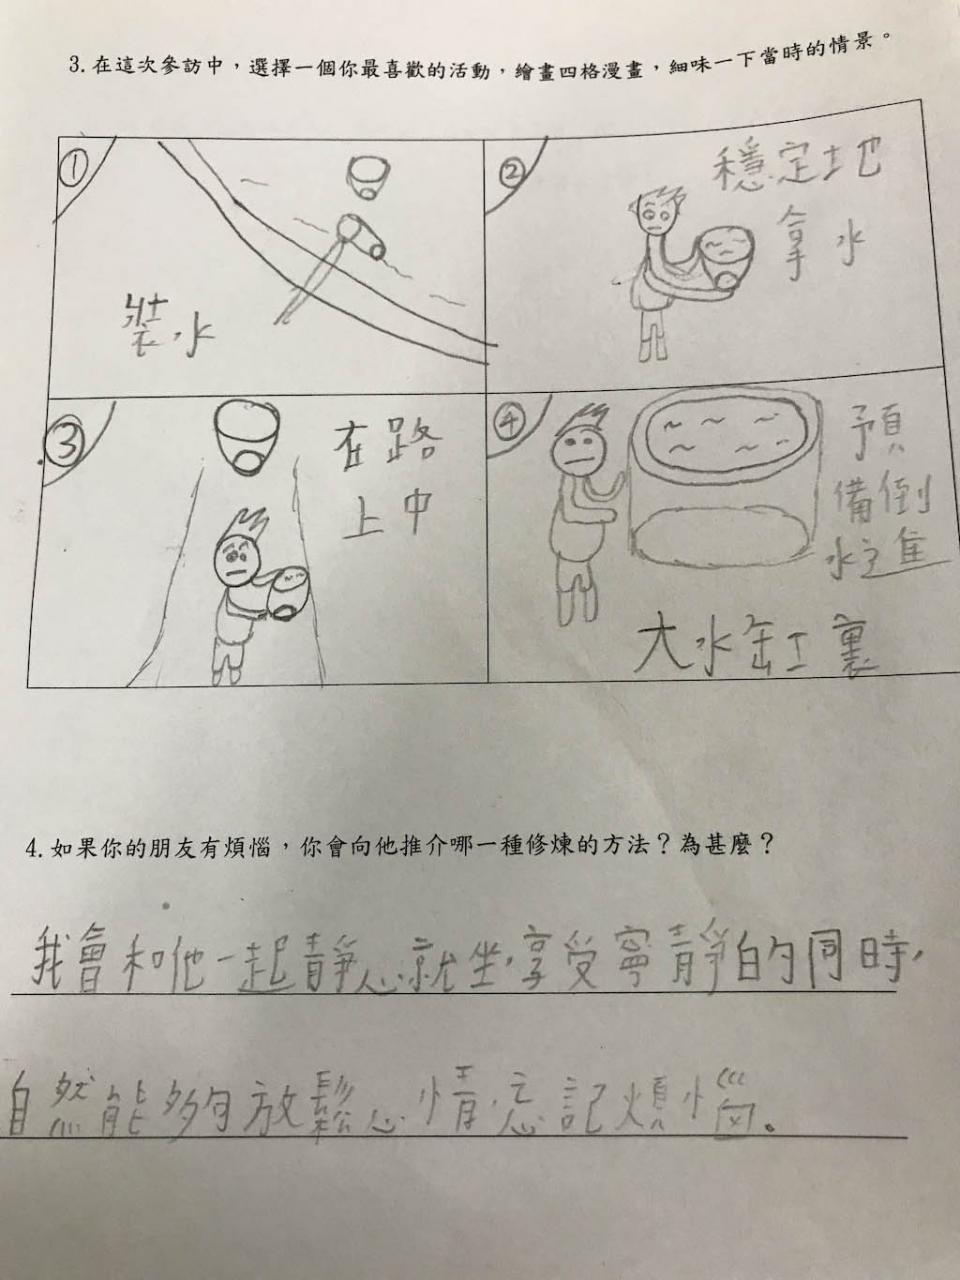 3. 在這次參訪中，選擇一個你最喜歡的活動，繪畫四格漫畫，細味一下當時的情景。
①
裝水
②
穩定地
拿水
③
在路
上中
④
預
備倒
水進
大水缸裏
4. 如果你的朋友有煩惱，你會向他推介哪一種修煉的方法？為甚麼？
我會和他一起靜心就坐，享受寧靜的同時，
自然能夠放鬆心情，忘記煩惱。